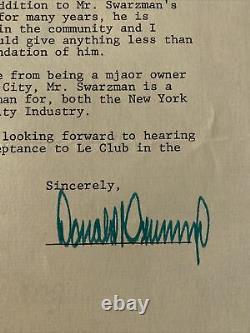 ddition to Mr. Swarzman's
for many years, he is
in the community and I
uld give anything less than
ndation of him.
e from being a mjaor owner
City, Mr. Swarzman is a
man for, both the New York
ity Industry.
looking forward to hearing
eptance to Le Club in the
Sincerely,
Donald Trump